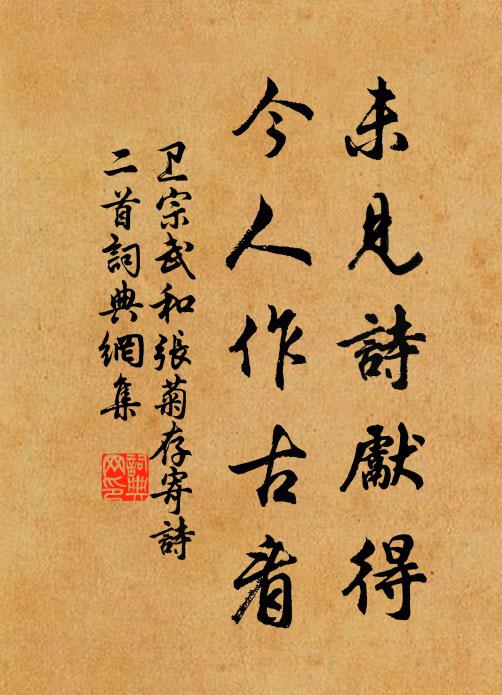 未見詩獻得
今人作古看
卫宗武和張菊存寄詩
二首詞典網集
詞典
网印